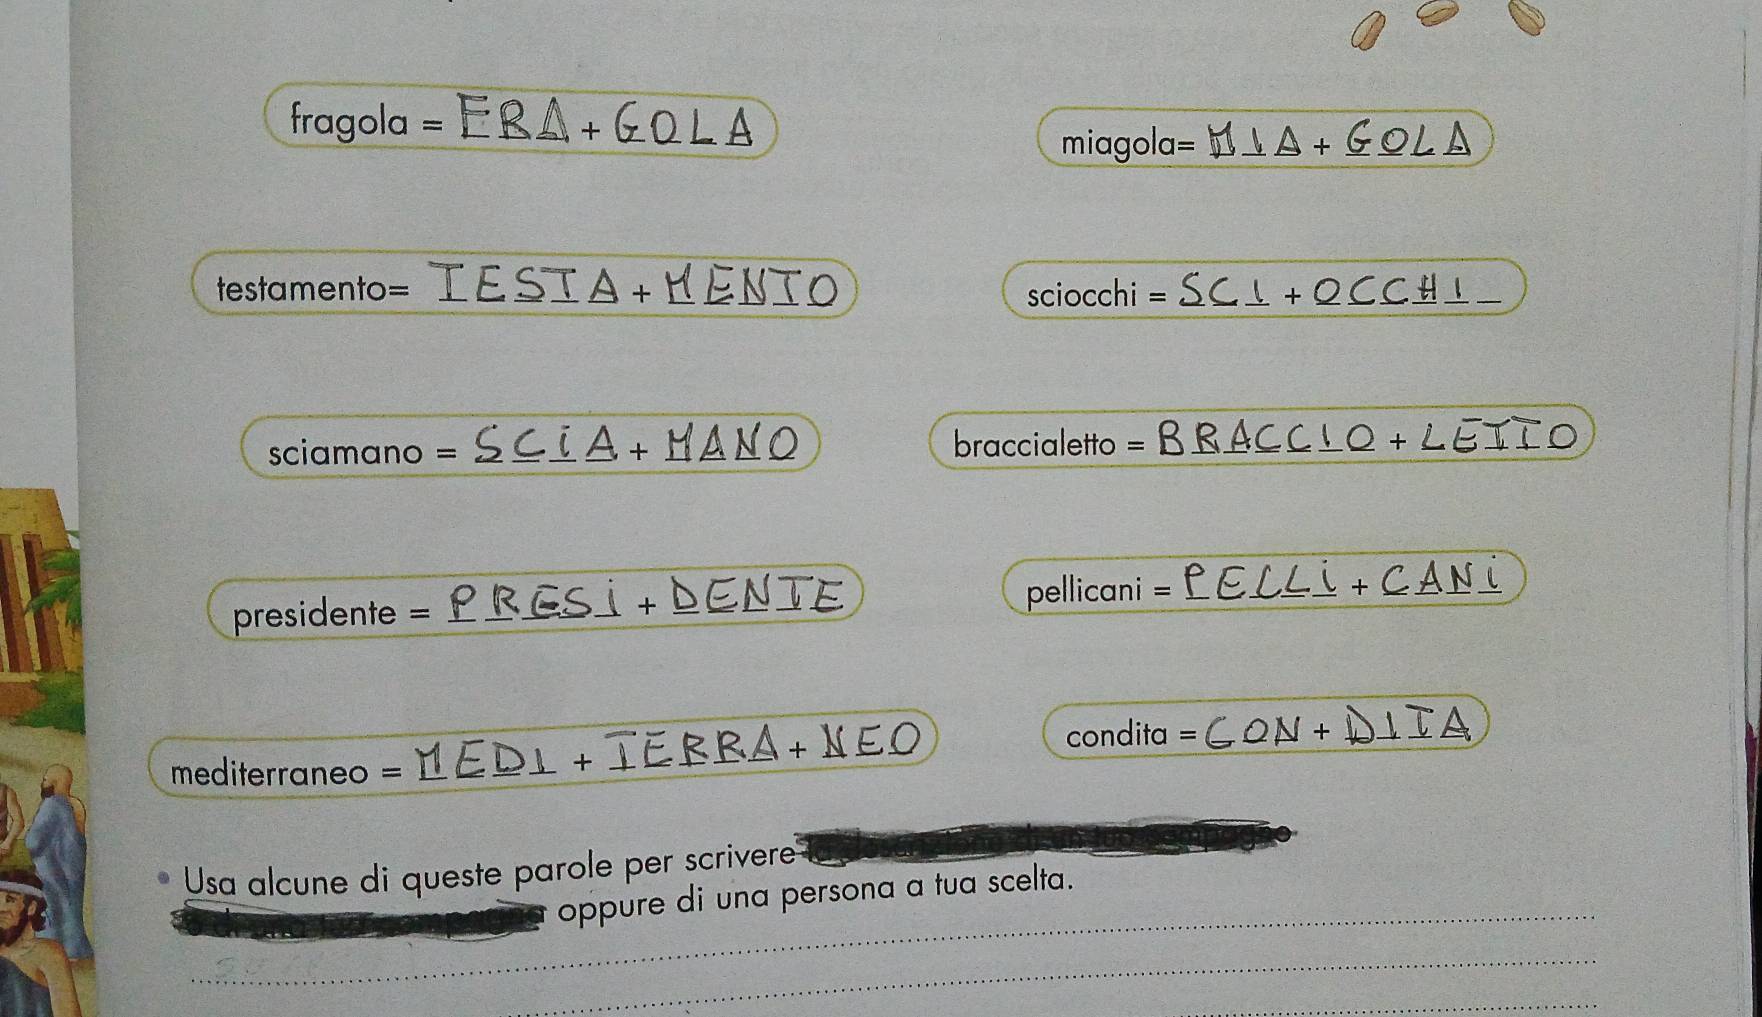 fragola = FRA + GOLA
miagola= MIA + GOLA
testamento= TESTA + MENTO
sciocchi = SCI + OCCHI _
sciamano = SCIA + MANO
braccialetto = BRACCIO + LETTO
presidente = PRESI + DENTE
pellicani = PELLI + CANI
mediterraneo = MEDI + TERRA + NEO
condita = CON + DITA
• Usa alcune di queste parole per scrivere
oppure di una persona a tua scelta.